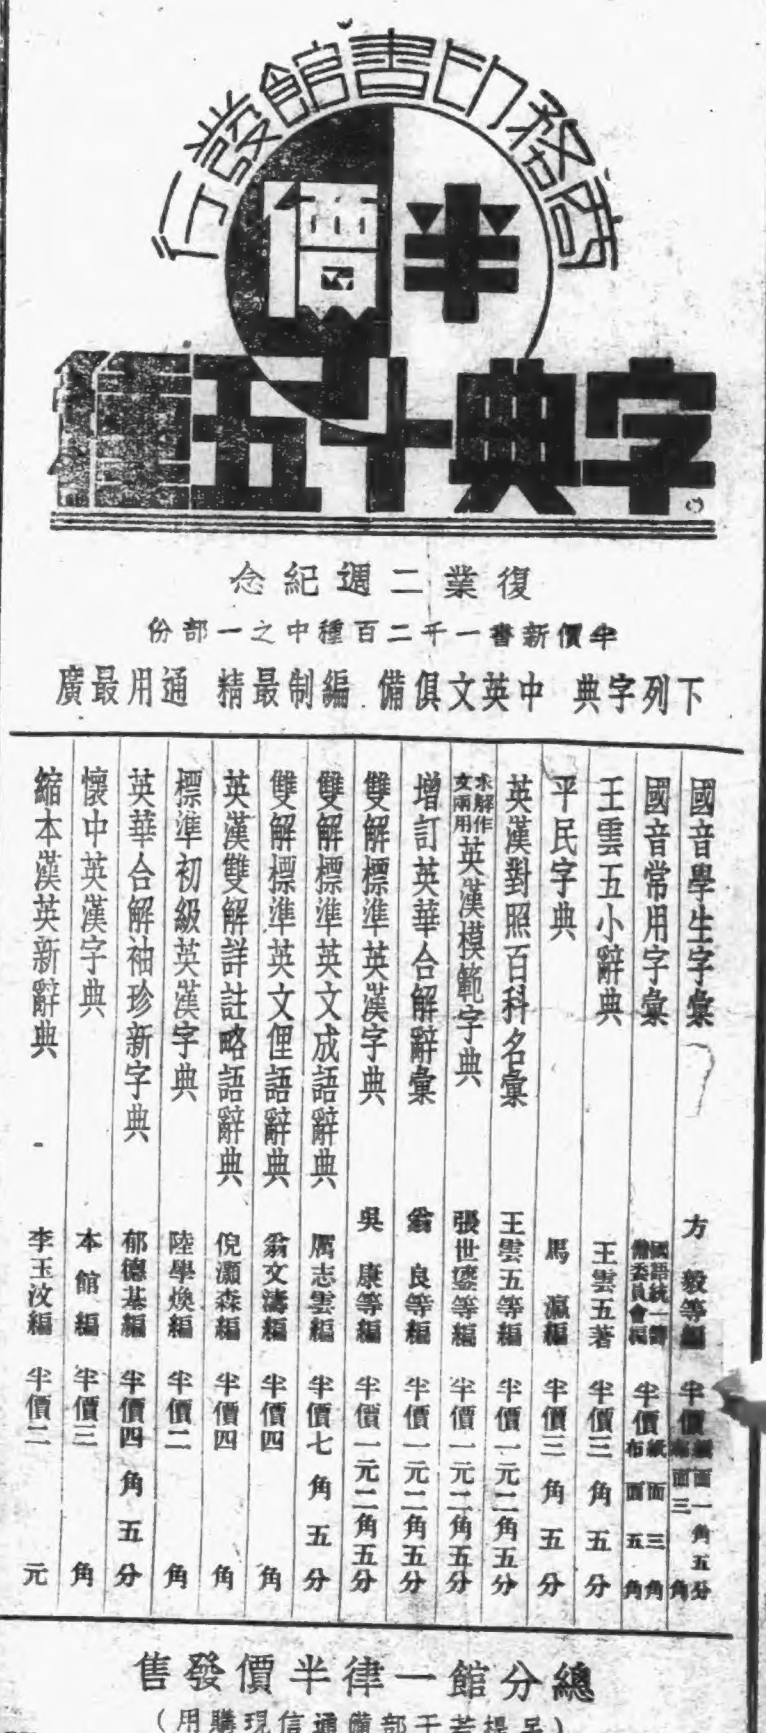 商務印書館發行
半價
字典十五種
復業二週紀念
半價新書一千二百種中之一部份
下列字典 中英文俱備 編制最精 通用最廣
國音學生字彙 方毅等編 半價 紙面一角五分 布面三角
國音常用字彙 國語統一籌備委員會編 半價 紙面三角 布面五角
王雲五小辭典 王雲五著 半價三角五分
平民字典 馬瀛編 半價三角五分
英漢對照百科名彙 王雲五等編 半價一元二角五分
求解作文兩用英漢模範字典 張世鎏等編 半價一元二角五分
增訂英華合解辭彙 翁良等編 半價一元二角五分
雙解標準英漢字典 吳康等編 半價一元二角五分
雙解標準英文成語辭典 厲志雲編 半價七角五分
雙解標準英文俚語辭典 翁文濤編 半價四角
英漢雙解詳註略語辭典 倪灝森編 半價四角
標準初級英漢字典 陸學煥編 半價二角
英華合解袖珍新字典 郁德基編 半價四角五分
懷中英漢字典 本館編 半價三角
縮本漢英新辭典 李玉汶編 半價二元
總分館一律半價發售
備通信現購用)